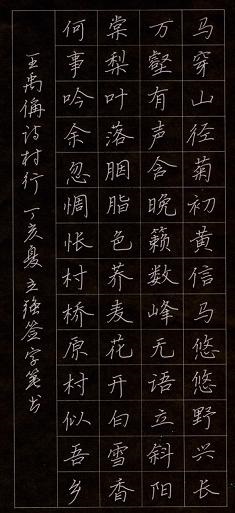 马穿山径菊初黄信马悠悠野兴长
万壑有声含晚籁数峰无语立斜阳
棠梨叶落胭脂色荞麦花开白雪香
何事吟余忽惆怅村桥原村似吾乡
王禹偁诗村行 丁亥夏立强签字笔书